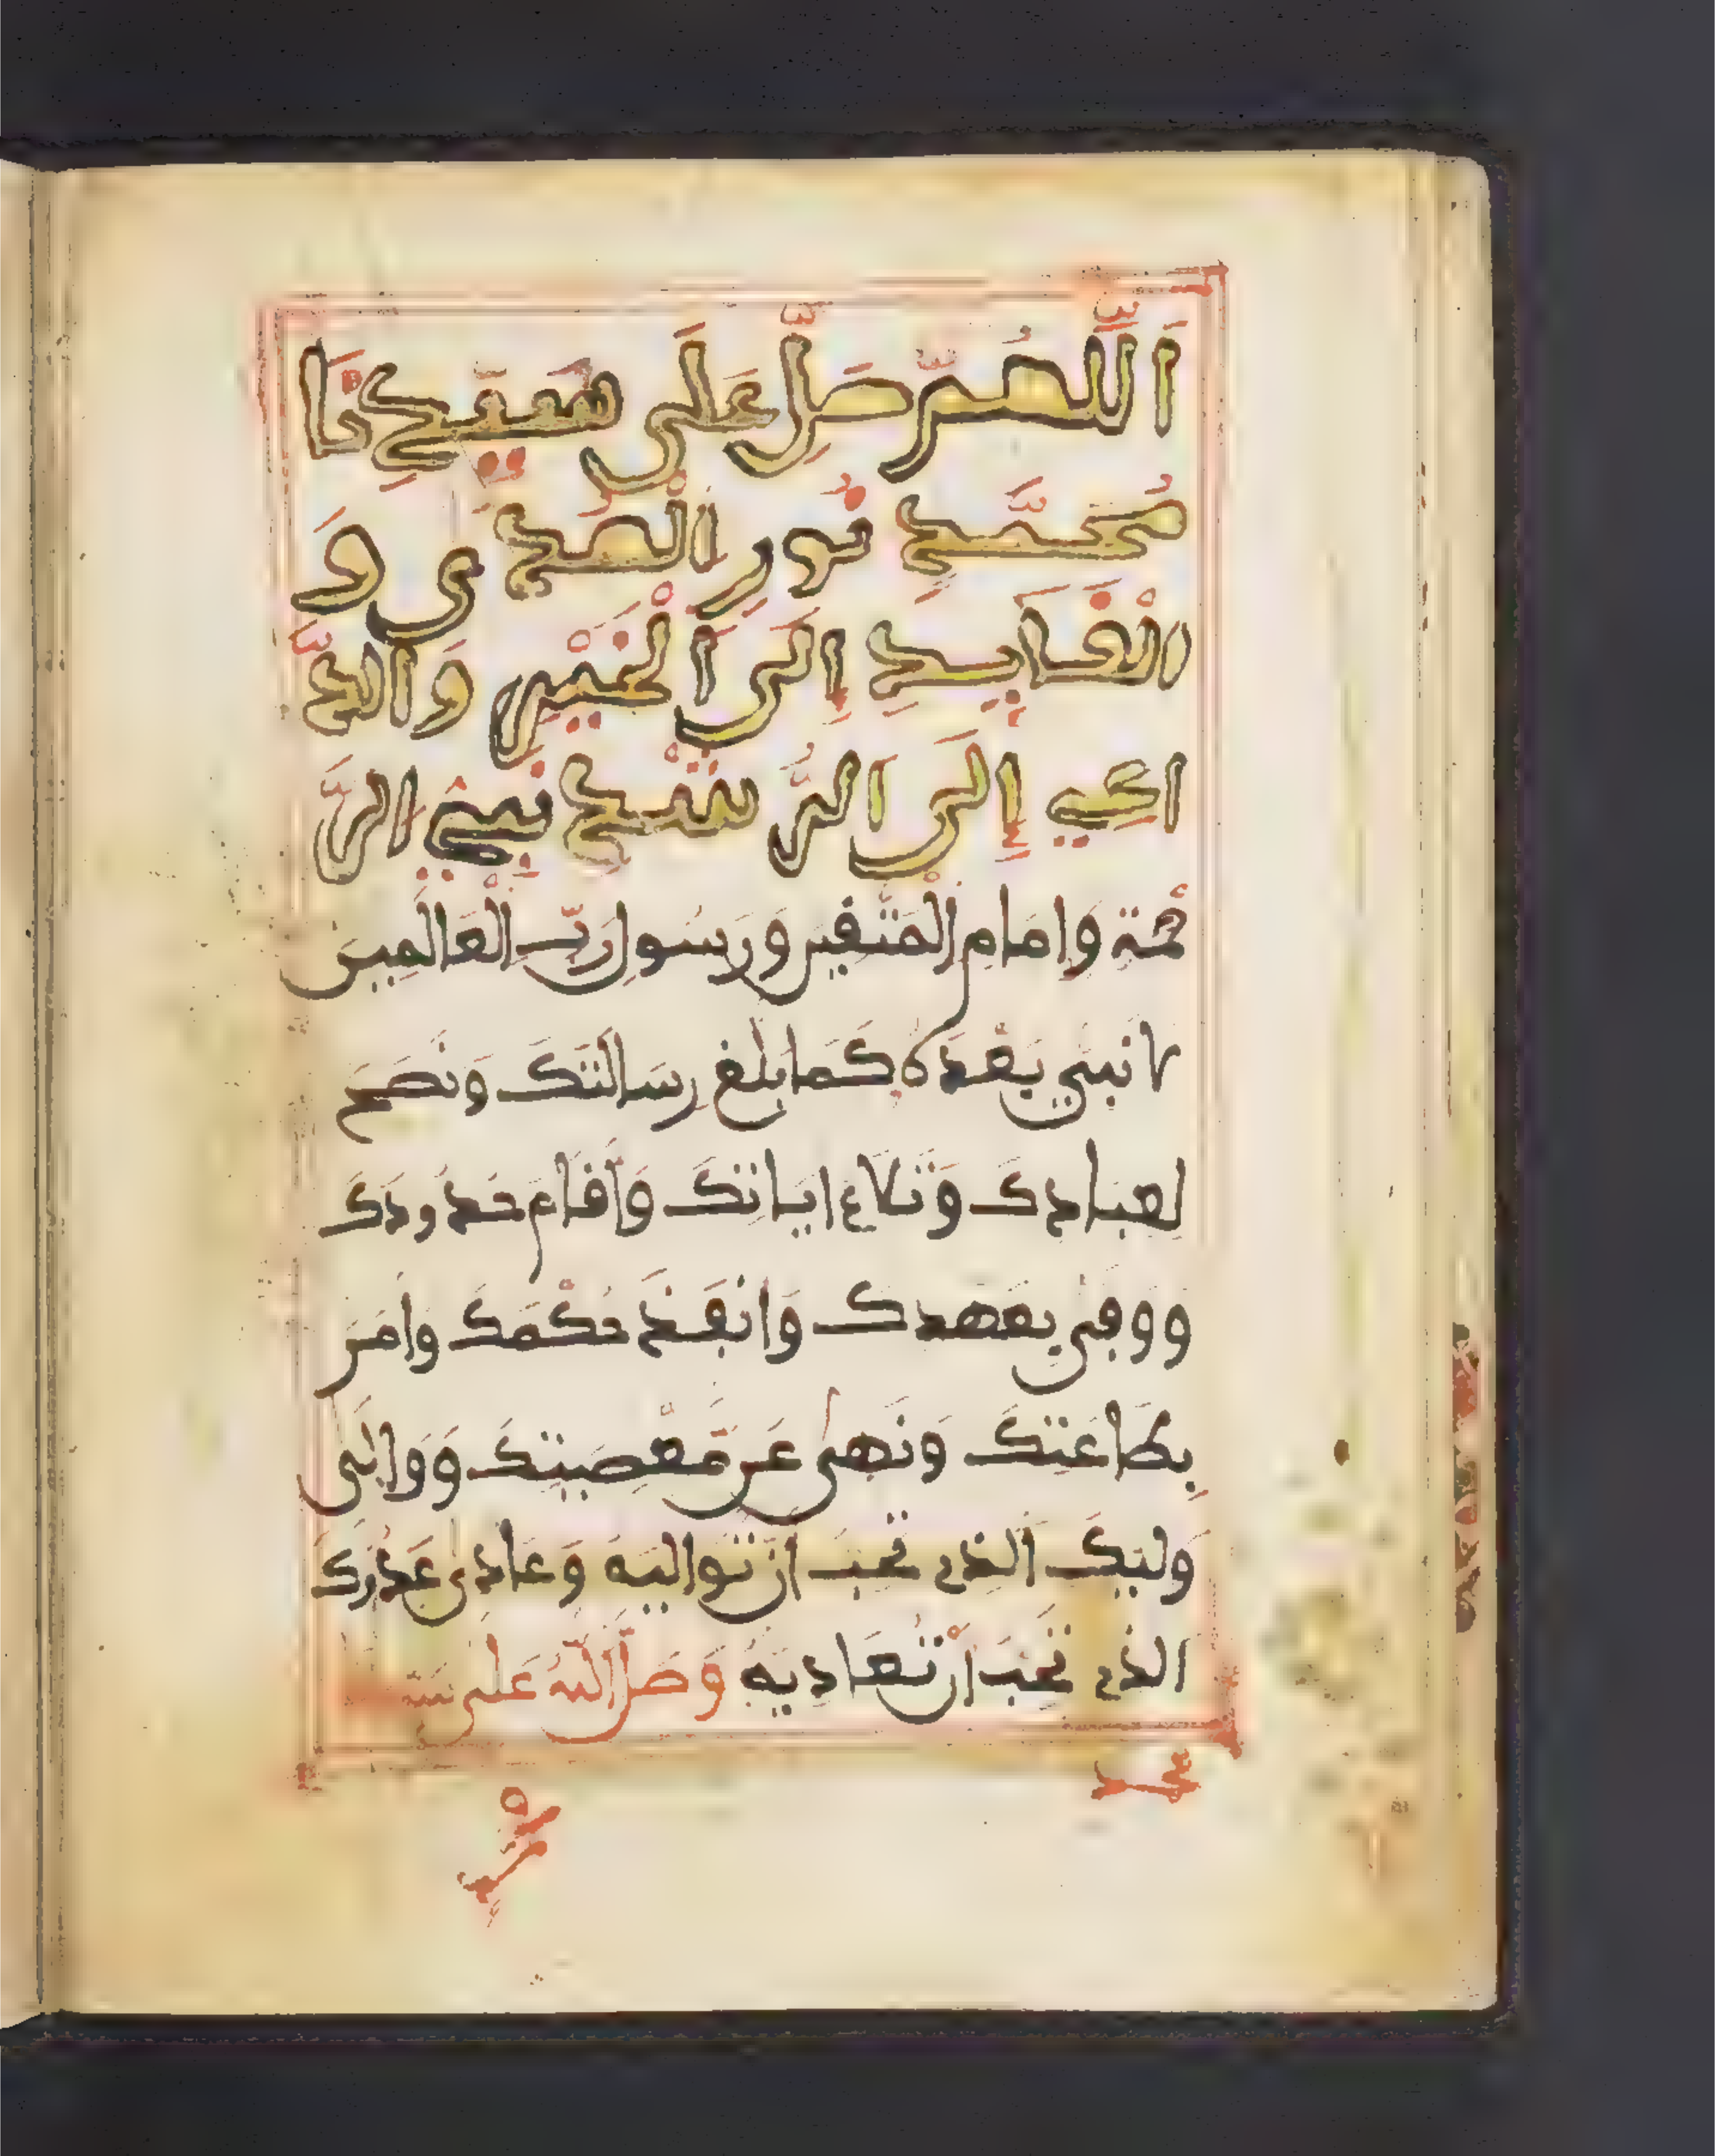 اَللَّهُمَّ صَلِّ عَلَى سَيِّدِنَا
مُحَمَّدٍ نُورِ الْهُدَى وَ
الْقَايِدِ إِلَى اَلْخَيْرِ وَالدَّ
اعِي إِلَى اَلرُّشْدِ نَبِيِّ الرَّ
حْمَة وَامَام اِلْمُتَّقِين وَرَسُول رَبِّ الْعَالَمِين
لا نبي بَعْدَهُ كَمَا بلغ رسَالَتَكَ وَنصَح
لعبادك وَتَلاَ ءايَاتكَ وَأَقَامَ حُدُودَكَ
وَوفى بعَهدك وَانفَذَ حُكْمَكَ وامَرَ
بِطَاعَتكَ وَنَهى عَن مَّعْصِيتكَ وَوَالَى
وَليكَ الذِي تُحِبّ انْ تُوَاليَهُ وَعَادى عَدُوكَ
الذي تُحِبّ أَنْ تُعَادِيَهُ وَصَلَّى اَللَّهُ عَلَى سَيد
محمد